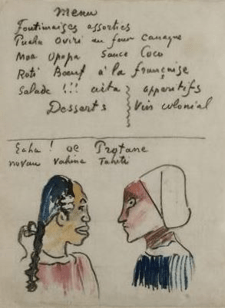 Menu
Foutimaises assorties
Puaka oviri au four canaque
Moa Opapa Sauce Coco
Roti Bœuf à la française
Salade !!! aita apperitifs
Desserts Vin colonial
Eaha! oe Protane
novau vahina Tahiti